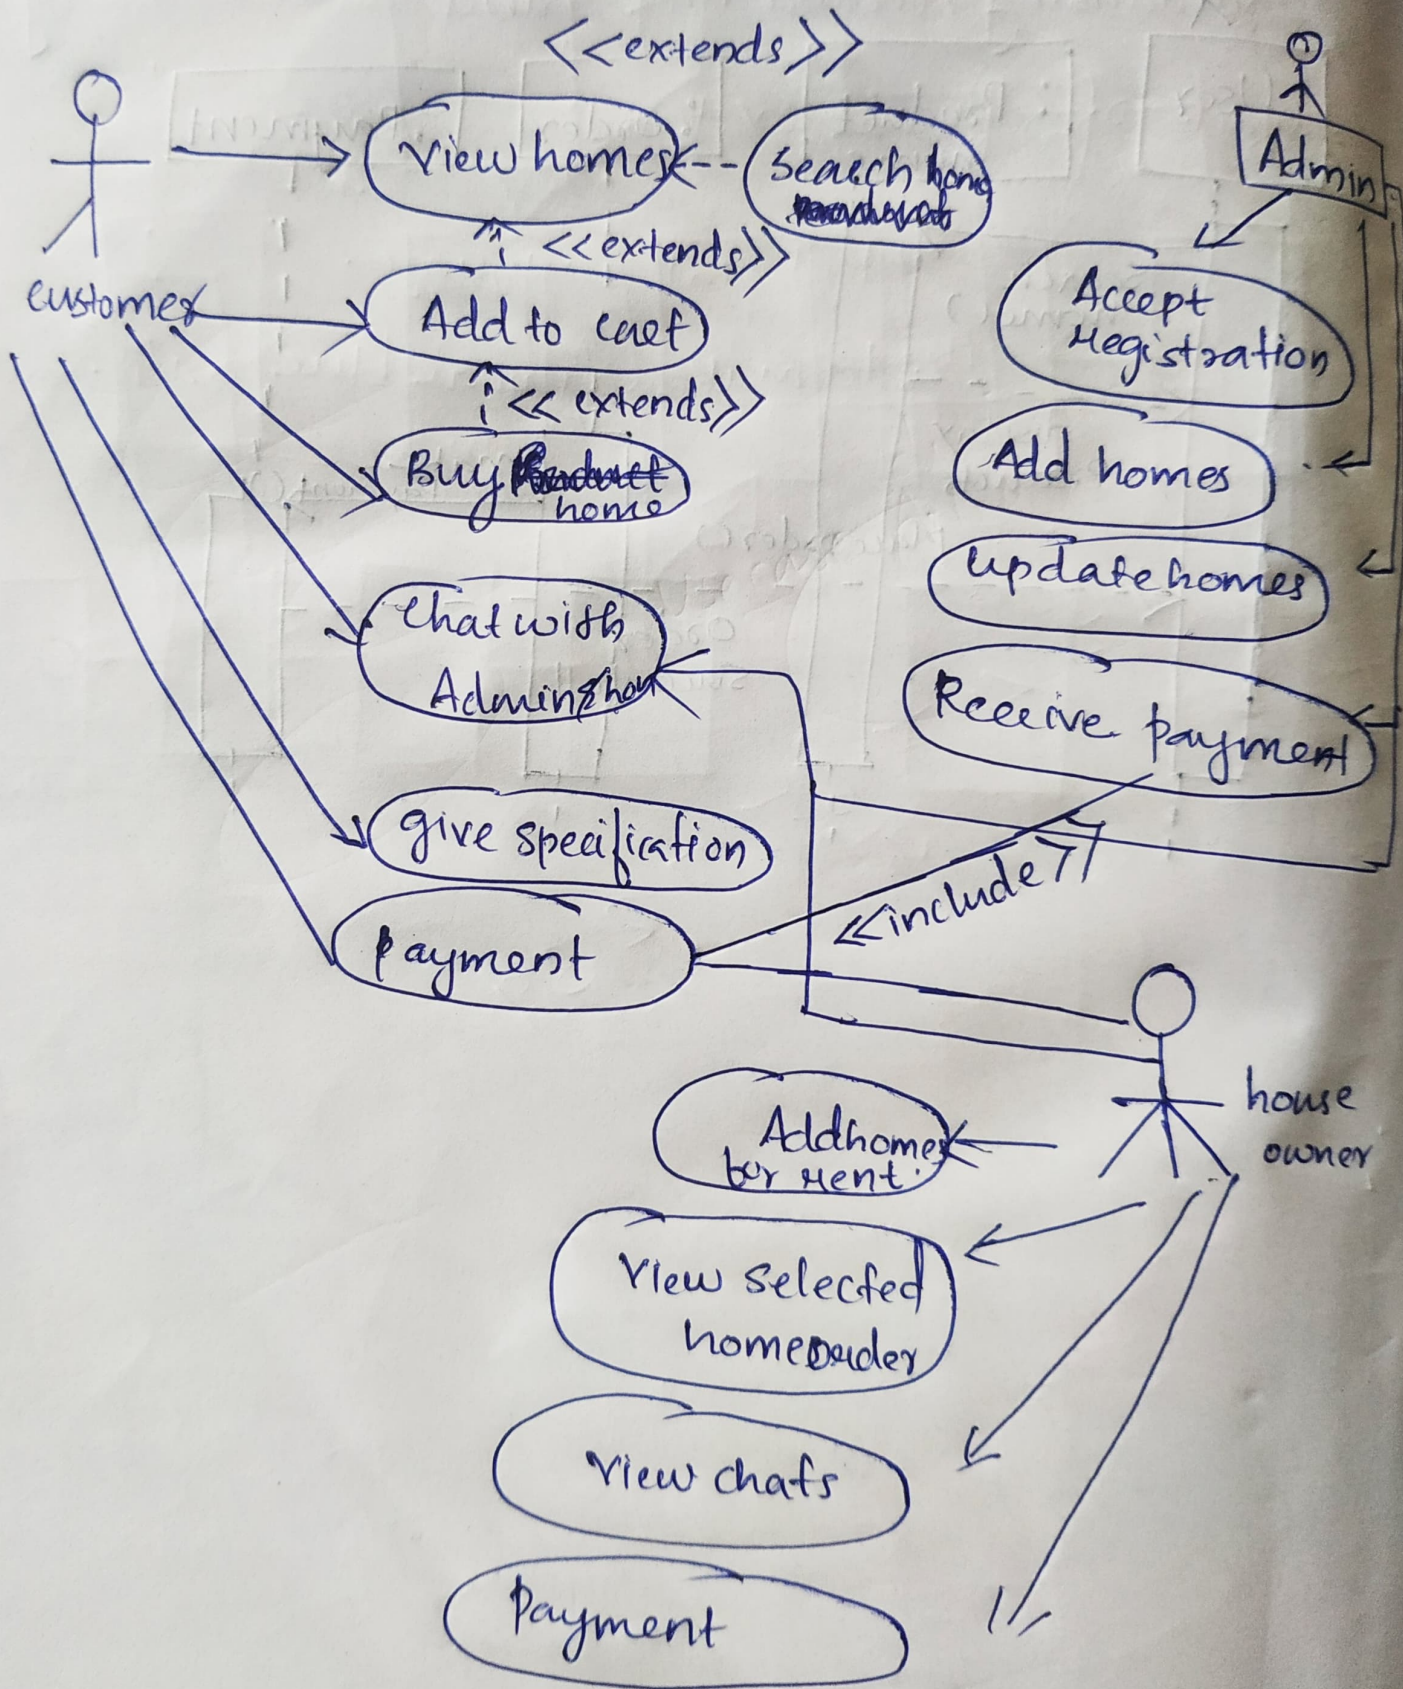 <<extends>>
View homes
Search home
Admin
<<extends>>
customer
Add to cart
Accept
registration
<<extends>>
Buy
home
Add homes
update homes
Chat with
Admin
Receive payment
give specification
<<include>>
payment
house
owner
Add homes
for rent.
View selected
home order
View chats
Payment